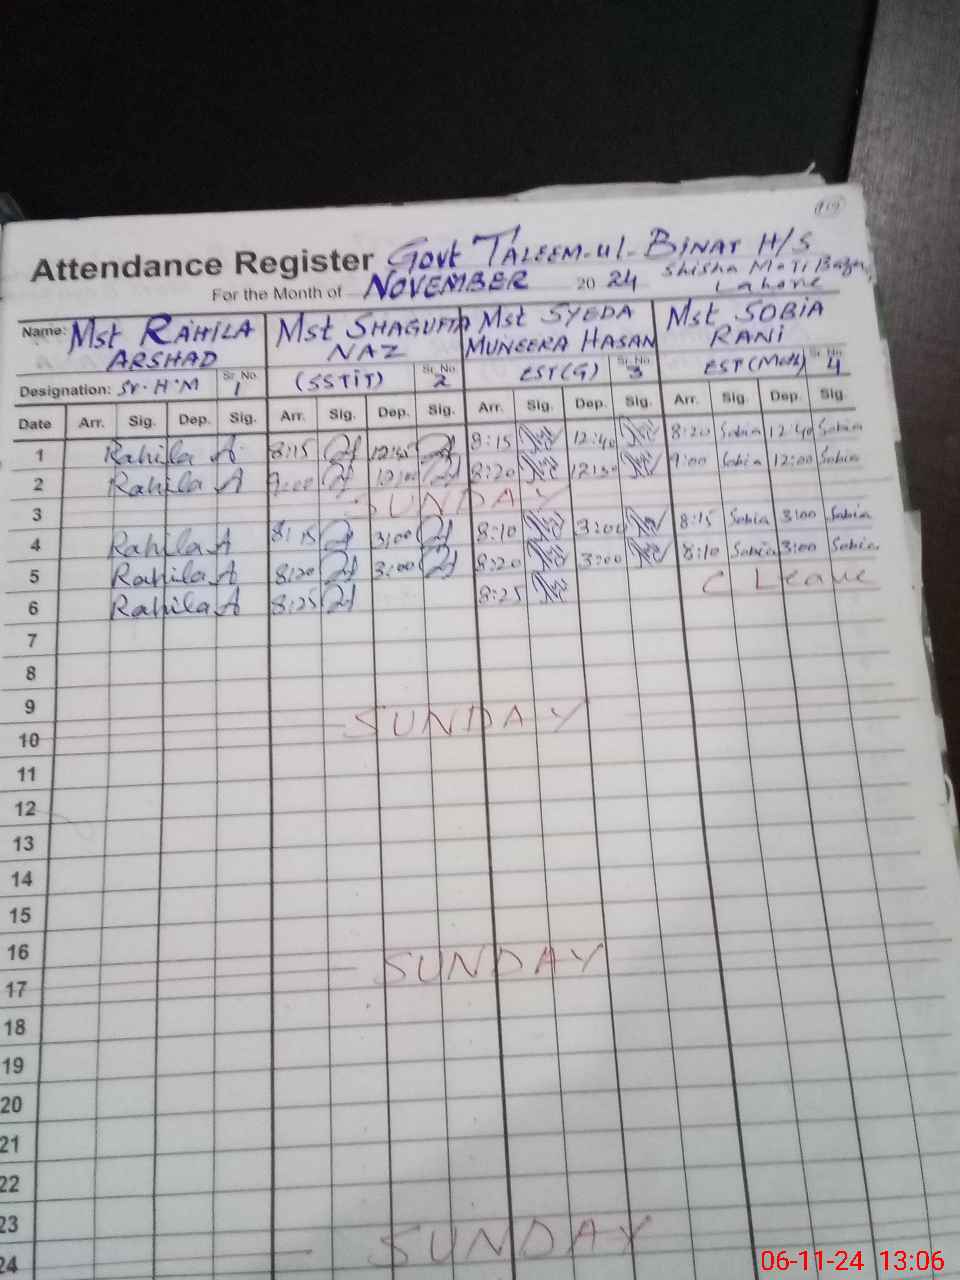 Attendance Register Govt TALEEM-ul-BINAT H/S
Shisha Moti Bazar,
For the Month of NOVEMBER 20 24 Lahore
Name: Mst RAHILA ARSHAD Mst SHAGUFTA NAZ Mst SYEDA MUNEERA HASAN Mst SOBIA RANI
Designation: Sr. H.M Sr. No 1 (SSTIT) Sr. No 2 EST(G) Sr. No 3 EST(Math) Sr. No 4
Date Arr. Sig. Dep. Sig. Arr. Sig. Dep. Sig. Arr. Sig. Dep. Sig. Arr. Sig. Dep. Sig.
1 Rahila A 8:15 12:45 8:15 12:40 8:20 Sobia 12:40 Sobia
2 Rahila A 9:00 12:00 8:20 12:30 9:00 Sobia 12:00 Sobia
3 SUNDAY
4 Rahila A 8:15 3:00 8:10 3:00 8:15 Sobia 3:00 Sobia
5 Rahila A 8:20 3:00 8:20 3:00 8:10 Sobia 3:00 Sobia
6 Rahila A 8:25 8:25 C Leave
7
8
9
10 SUNDAY
11
12
13
14
15
16
17 SUNDAY
18
19
20
21
22
23
24 SUNDAY
06-11-24 13:06